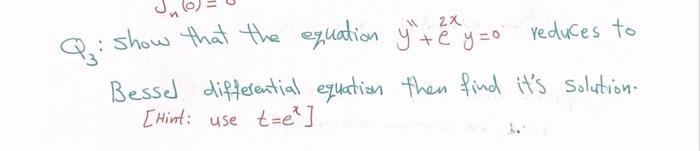 Jₙ(0) = 0
Q₃: show that the equation y'' + e^{2x} y = 0 reduces to
Bessel differential equation then find it's solution.
[Hint: use t = eˣ]